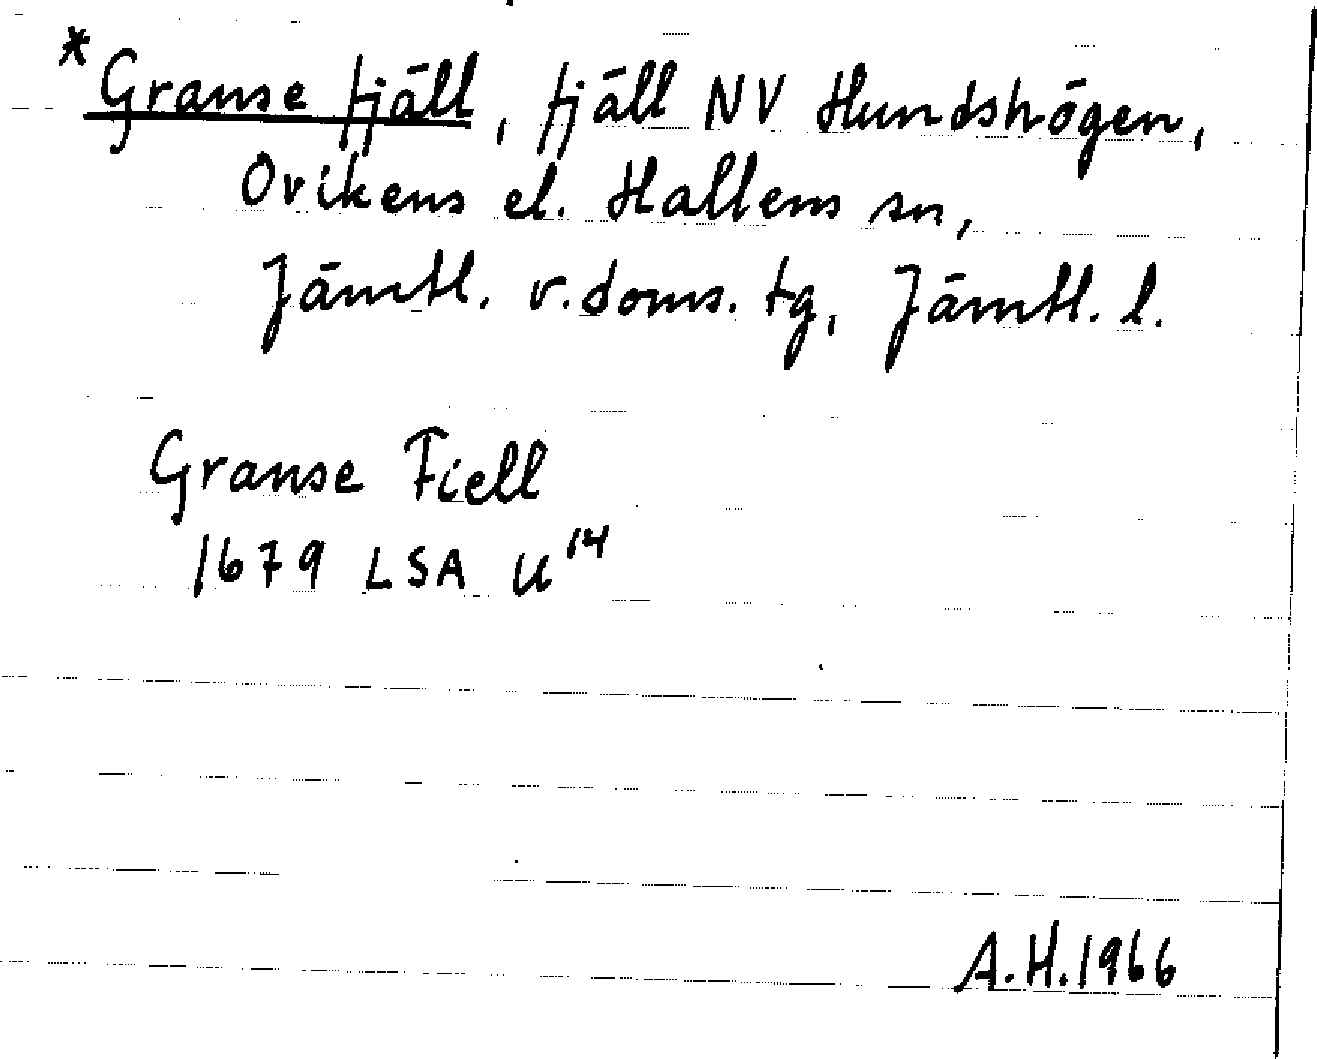 *Granse fjäll, fjäll NV Hundshögen,
Ovikens el. Hallens sn,
Jämtl. v. doms. tg, Jämtl. l.
Granse Fiell
1679 LSA U¹⁴
A.H. 1966